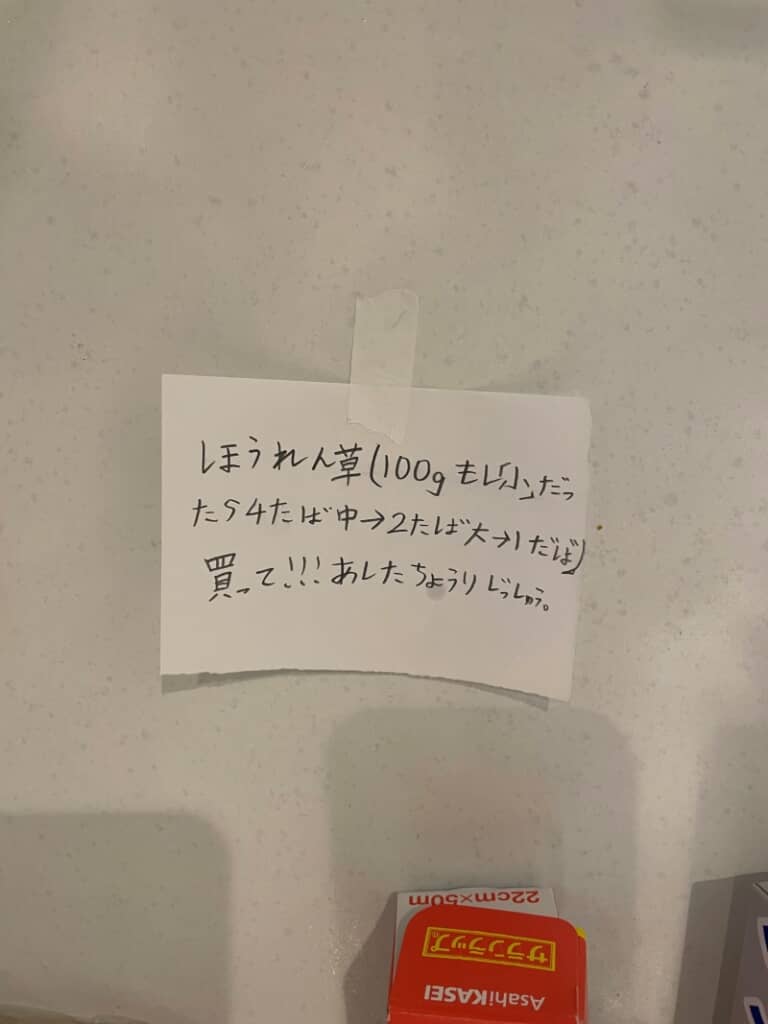 ほうれん草(100gもし「小」だっ
たら4たば中→2たば大→1だば)
買って!!!あしたちょうりじっしゅう。
22cm×50m
サランラップ®
AsahiKASEI